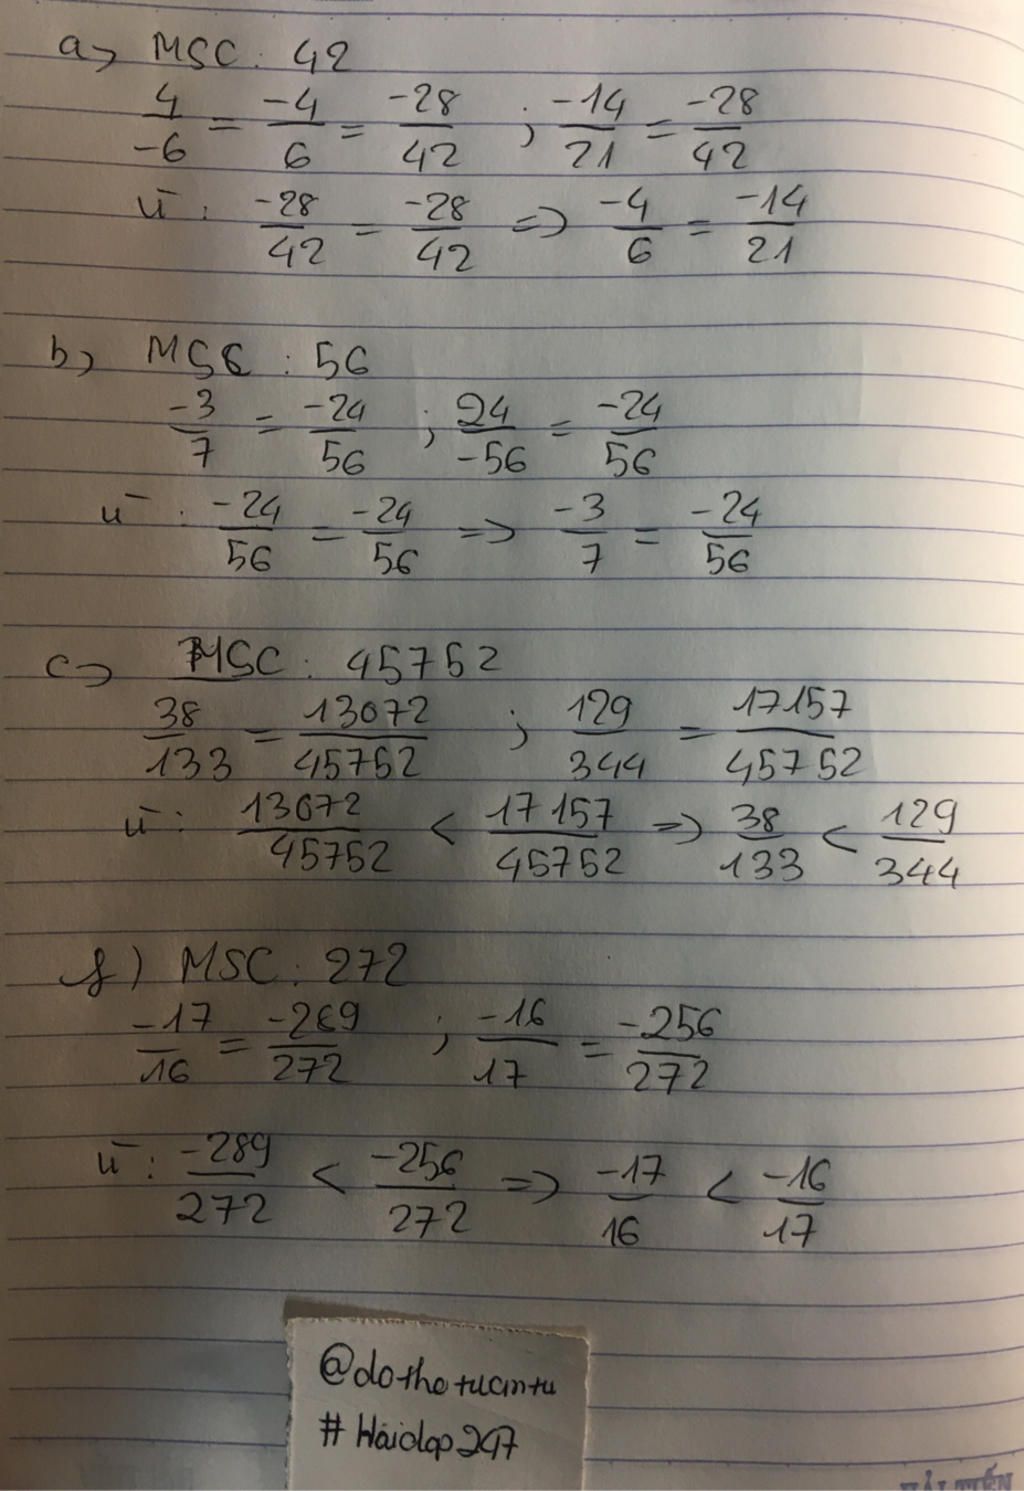 a) MSC: 42
4/-6 = -4/6 = -28/42 ; -14/21 = -28/42
Vì: -28/42 = -28/42 => -4/6 = -14/21
b) MSC : 56
-3/7 = -24/56 ; 24/-56 = -24/56
Vì: -24/56 = -24/56 => -3/7 = -24/56
c) MSC: 45752
38/133 = 13072/45752 ; 129/344 = 17157/45752
Vì: 13072/45752 < 17157/45752 => 38/133 < 129/344
f) MSC: 272
-17/16 = -289/272 ; -16/17 = -256/272
Vì: -289/272 < -256/272 => -17/16 < -16/17
@dothetuantu
# Hoidap247
HẢI TIẾN